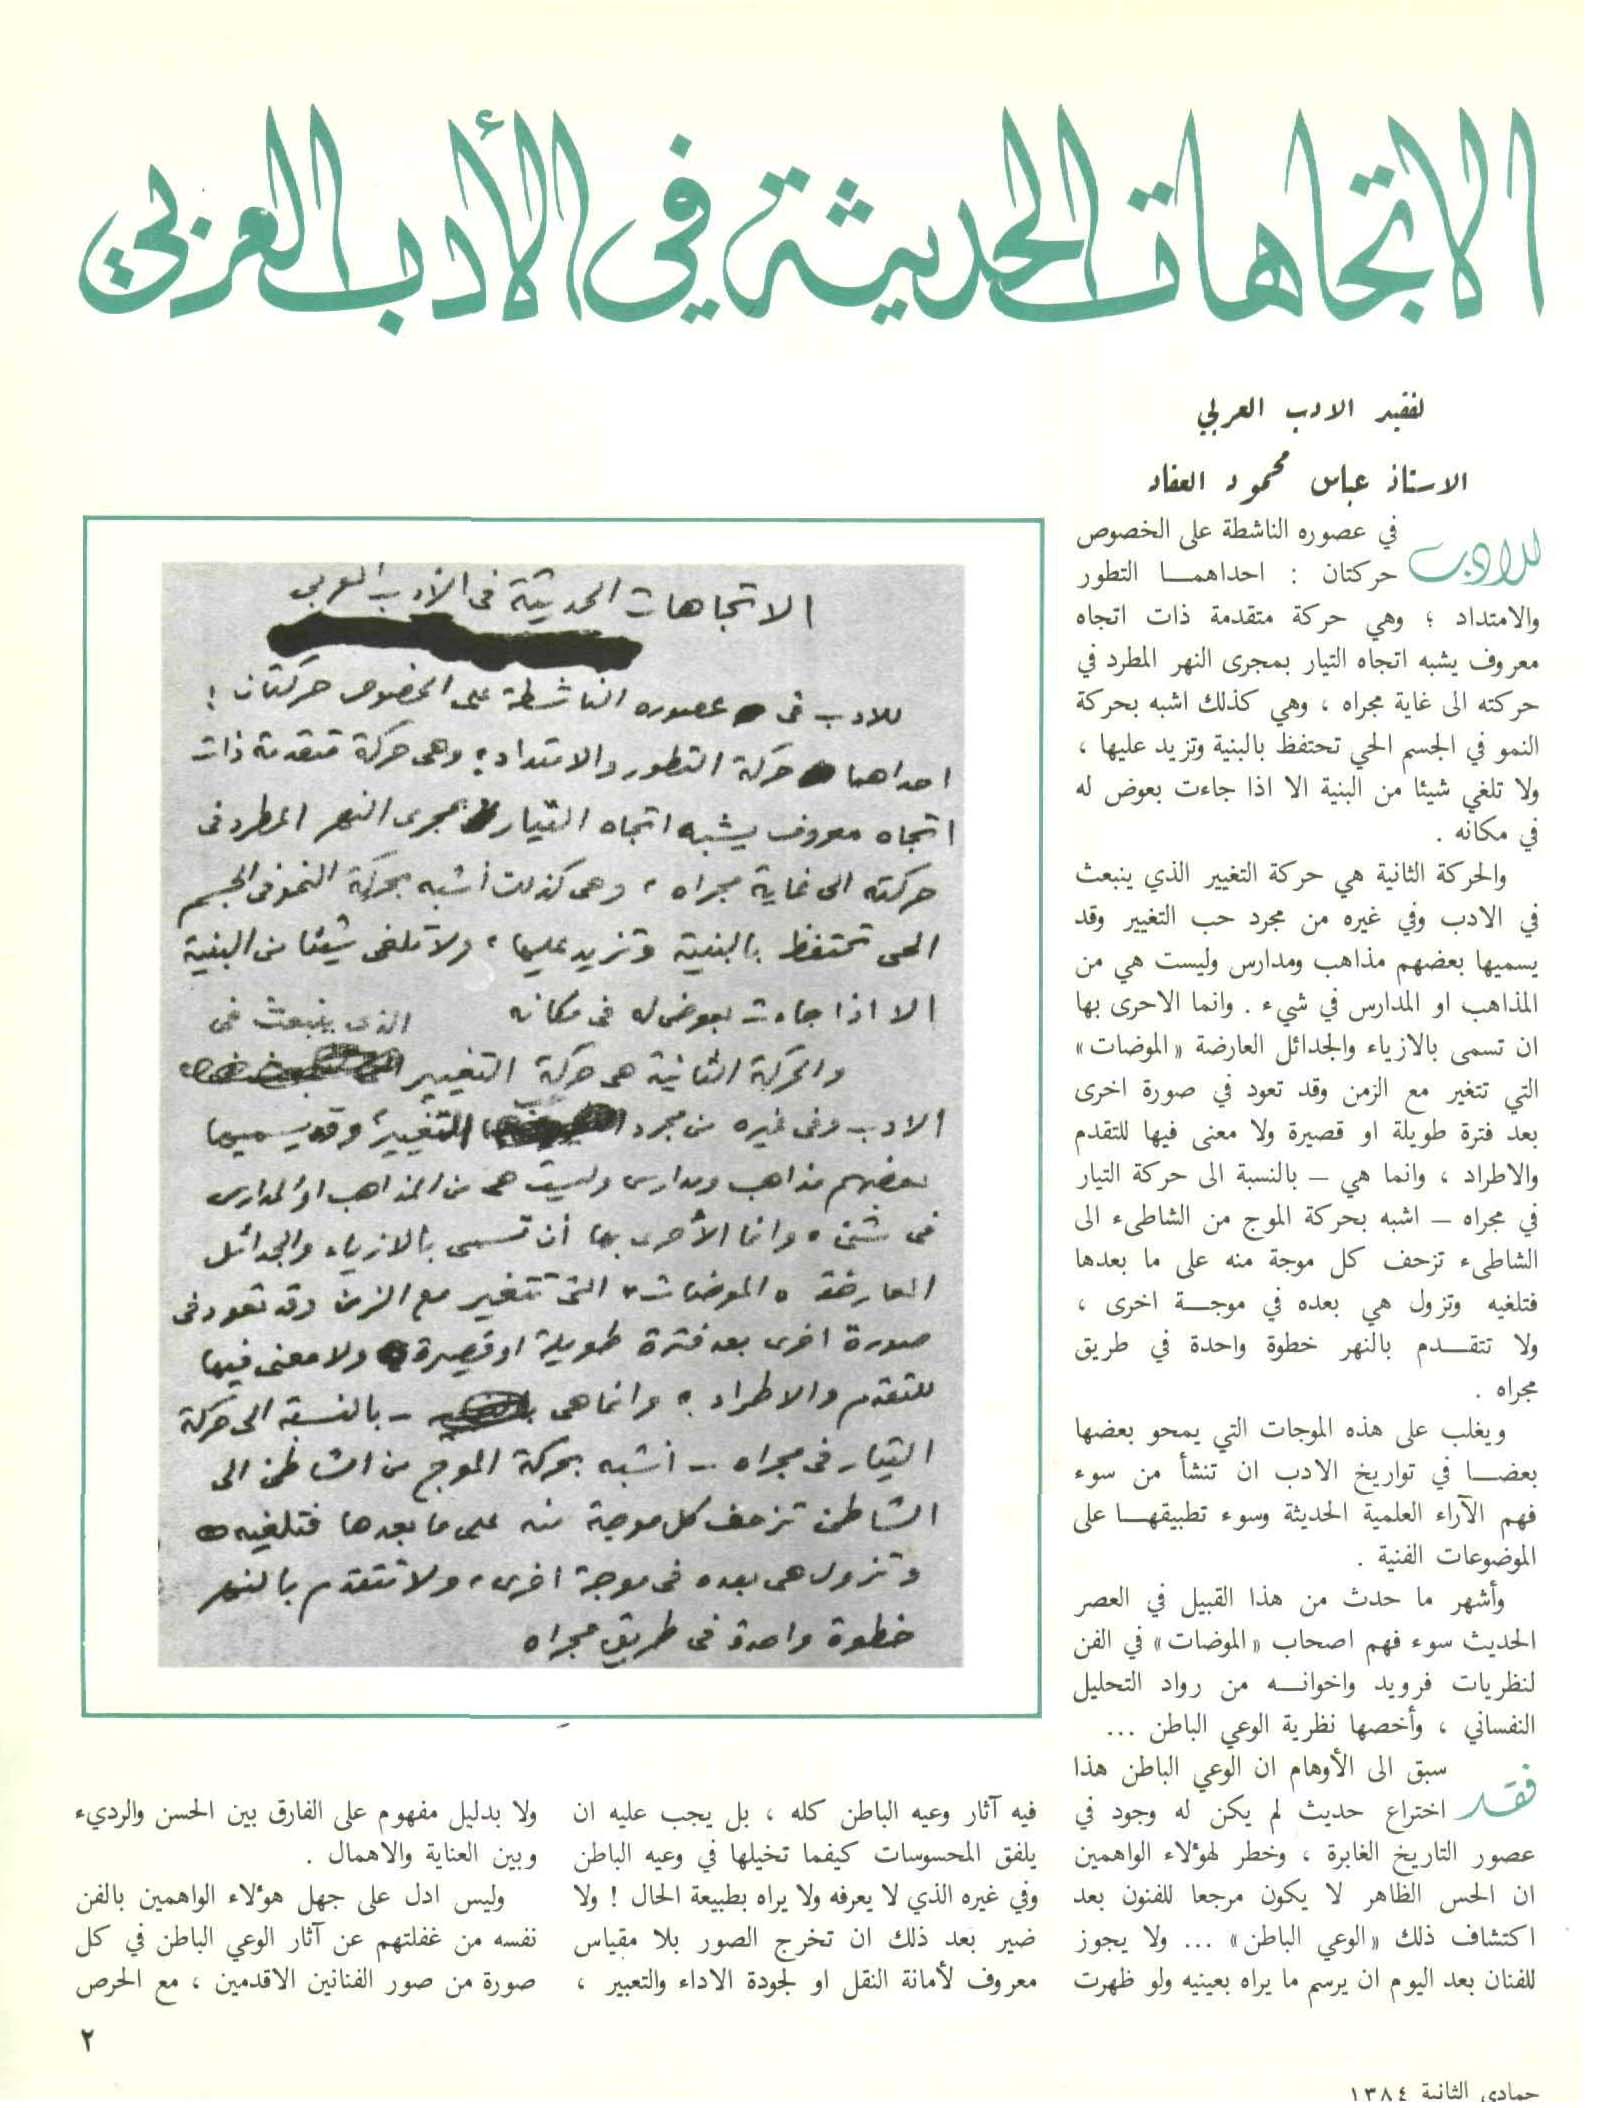 الاتجاهات الحديثة في الأدب العربي
لفقيد الادب العربي
الاستاذ عباس محمود العقاد
للادب في عصوره الناشطة على الخصوص
حركتان : احداهمـــا التطور
والامتداد ؛ وهي حركة متقدمة ذات اتجاه
معروف يشبه اتجاه التيار بمجرى النهر المطرد في
حركته الى غاية مجراه ، وهي كذلك اشبه بحركة
النمو في الجسم الحي تحتفظ بالبنية وتزيد عليها ،
ولا تلغي شيئا من البنية الا اذا جاءت بعوض له
في مكانه .
والحركة الثانية هي حركة التغيير الذي ينبعث
في الادب وفي غيره من مجرد حب التغيير وقد
يسميها بعضهم مذاهب ومدارس وليست هي من
المذاهب او المدارس في شيء . وانما الاحرى بها
ان تسمى بالازياء والجدائل العارضة «الموضات»
التي تتغير مع الزمن وقد تعود في صورة اخرى
بعد فترة طويلة او قصيرة ولا معنى فيها للتقدم
والاطراد ، وانما هي – بالنسبة الى حركة التيار
في مجراه – اشبه بحركة الموج من الشاطىء الى
الشاطىء تزحف كل موجة منه على ما بعدها
فتلغيه وتزول هي بعده في موجـــة اخرى ،
ولا تتقـــدم بالنهر خطوة واحدة في طريق
مجراه .
ويغلب على هذه الموجات التي يمحو بعضها
بعضـــا في تواريخ الادب ان تنشأ من سوء
فهم الآراء العلمية الحديثة وسوء تطبيقهـــا على
الموضوعات الفنية .
وأشهر ما حدث من هذا القبيل في العصر
الحديث سوء فهم اصحاب «الموضات» في الفن
لنظريات فرويد واخوانـــه من رواد التحليل
النفساني ، وأخصها نظرية الوعي الباطن ...
فقد سبق الى الأوهام ان الوعي الباطن هذا
اختراع حديث لم يكن له وجود في
عصور التاريخ الغابرة ، وخطر لهؤلاء الواهمين
ان الحس الظاهر لا يكون مرجعا للفنون بعد
اكتشاف ذلك «الوعي الباطن» ... ولا يجوز
للفنان بعد اليوم ان يرسم ما يراه بعينيه ولو ظهرت
الاتجاهات الحديثة فى الأدب العربى
للادب فى عصوره الناشطة على الخصوص حركتان :
احداهما حركة التطور والامتداد ؛ وهى حركة متقدمة ذات
اتجاه معروف يشبه اتجاه التيار بمجرى النهر المطرد فى
حركته الى غاية مجراه ، وهى كذلك أشبه بحركة النمو فى الجسم
الحى تحتفظ بالبنية وتزيد عليها ، ولا تلغى شيئا من البنية
الا اذا جاءت بعوض له فى مكانه
والحركة الثانية هى حركة التغيير الذى ينبعث فى
الادب وفى غيره من مجرد التغيير وقد يسميها
بعضهم مذاهب ومدارس وليست هى من المذاهب او المدارس
فى شىء ، وانما الأحرى بها أن تسمى بالازياء والجدائل
العارضة « الموضات » التى تتغير مع الزمن وقد تعود فى
صورة اخرى بعد فترة طويلة او قصيرة ولا معنى فيها
للتقدم والاطراد ؛ وانما هى – بالنسبة الى حركة
التيار فى مجراه – أشبه بحركة الموج من الشاطئ الى
الشاطئ تزحف كل موجة منه على ما بعدها فتلغيه
وتزول هى بعده فى موجة اخرى ، ولا تتقدم بالنهر
خطوة واحدة فى طريق مجراه
فيه آثار وعيه الباطن كله ، بل يجب عليه ان
يلفق المحسوسات كيفما تخيلها في وعيه الباطن
وفي غيره الذي لا يعرفه ولا يراه بطبيعة الحال ! ولا
ضير بعد ذلك ان تخرج الصور بلا مقياس
معروف لأمانة النقل او لجودة الاداء والتعبير ،
ولا بدليل مفهوم على الفارق بين الحسن والرديء
وبين العناية والاهمال .
وليس ادل على جهل هؤلاء الواهمين بالفن
نفسه من غفلتهم عن آثار الوعي الباطن في كل
صورة من صور الفنانين الاقدمين ، مع الحرص
٢
جمادى الثانية ١٣٨٤